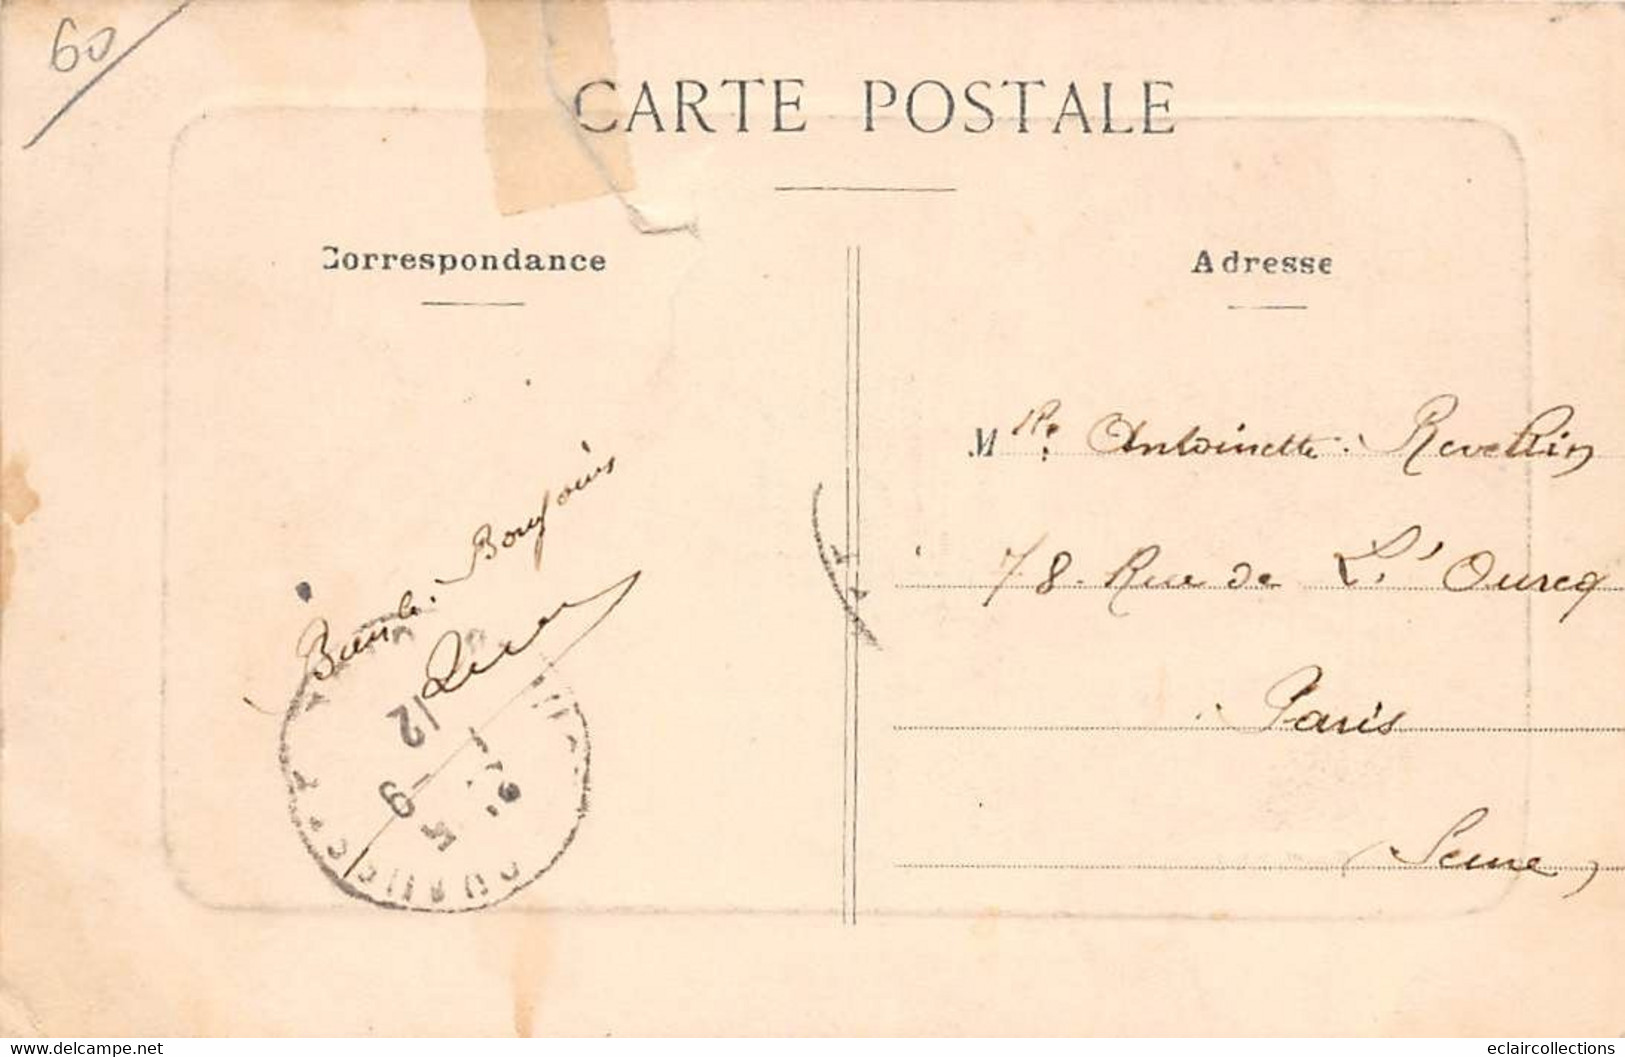 60
CARTE POSTALE
Correspondance
Adresse
Mlle Antoinette Revellin
78 Rue de L'Ourcq
Paris
(Seine)
Bonjours
12
9
5
delcampe.net
eclaircollections